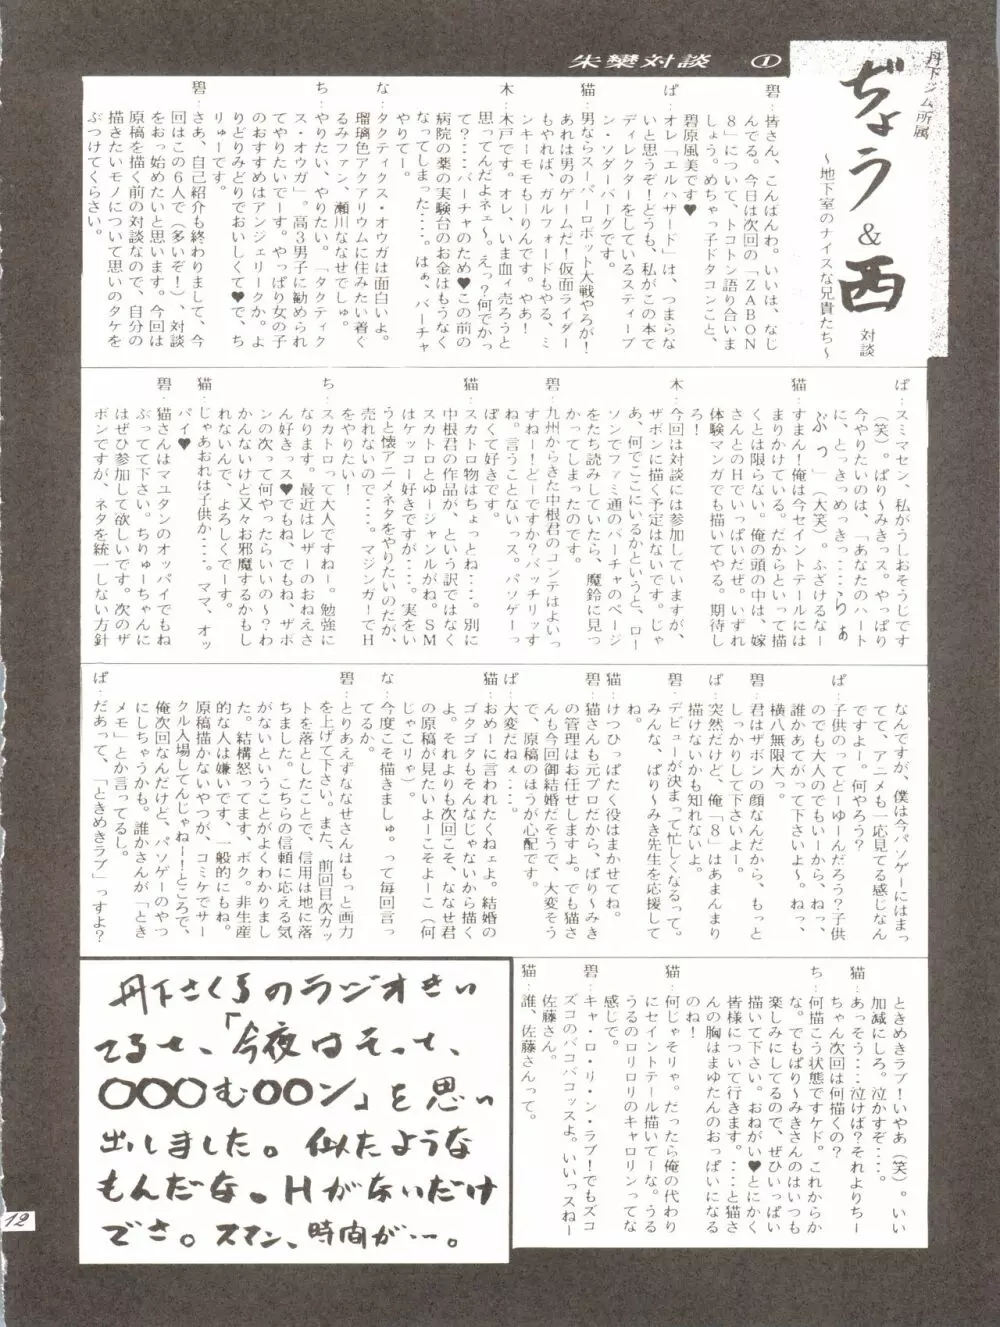 丹下ジム所属
ぢょう&西
対談
~地下室のナイスな兄貴たち~
朱欒対談 ①
碧:皆さん、こんばんわ。いいは、なじ
んでる。今日は次回の「ZABON
8」について、トコトン語り合いま
しょう。めちゃっ子ドタコンこと、
碧原風美です♥
ぱ:オレ「エルハザード」は、つまらな
いと思うぞ!どうも、私がこの本で
ディレクターをしているスティーブ
ン・ソダーバーグです。
猫:男ならスーパーロボット大戦やろが!
あれは男のゲームだ!仮面ライダー
もやれば、ガルフォードもやる、ミ
ンキーモモもーりんです。やあ!
木:木戸です。オレ、いま血ィ売ろうと
思ってんだよネェ~。えっ?何でかっ
て?‥‥バーチャのため♥この前の
病院の薬の実験台のお金はもうなく
なってしまった‥‥。はぁ、バーチャ
やりてー。
な:タクティクス・オウガは面白いよ。
瑠璃色アクアリウムに住みたい着ぐ
るみファン、瀬川ななせでしゅ。
ち:やりたい、やりたい。「タクティク
ス・オウガ」。高3男子に勧められ
てやりたいでーす。やっぱり女の子
のおすすめはアンジェリークか。よ
りどりみどりでおいしくて♥で、ち
りゅーです。
碧:さあ、自己紹介も終わりまして、今
回はこの6人で(多いぞ!)、対談
をおっ始めたいと思います。今回は
原稿を描く前の対談なので、自分の
描きたいモノについて思いのタケを
ぶつけてくらさい。
ぱ:スミマセン、私がうしおそうじです
(笑)。ぱり~みきっス。やっぱり
今やりたいのは、「あなたのハート
に、とっきっめっきっ‥‥らぁ
ぶっ」(大笑)。ふざけるなー
猫:すまん!俺は今セイントテールには
まりかけている。だからといって描
くとは限らない。俺の頭の中は、嫁
さんとのHでいっぱいだぜ。いずれ
体験マンガでも描いてやる。期待し
ろ!
木:今回は対談には参加していますが、
ザボンに描く予定はないです。じゃ
あ、何でここにいるかというと、ロー
ソンでファミ通のバーチャのページ
をたち読みしていたら、魔鈴に見っ
かってしまったのです。
碧:九州からきた中根君のコンテはよいっ
すねー!どーですか?バッチリっす
ね。言うことないっス。パソゲーっ
ぽくて好きです。
猫:スカトロ物はちょっとね‥‥。別に
中根君の作品が、という訳ではなく
スカトロとゆージャンルがね。SM
はケッコー好きですが‥‥。実をい
うと懐アニメネタをやりたいのだが、
売れないので‥‥。マジンガーでH
をやりたい!
ち:スカトロって大人ですねー。勉強に
なります。最近はレザーのおねえさ
ん好きっス♥でもね、でもね、ザボ
ンの次って何やったらいいの~?わ
かんないけど又々お邪魔するかもし
れないんで、よろしくでーす。
猫:じゃあおれは子供か‥‥。ママ、オッ
パイ♥
碧:猫さんはマユタンのオッパイでもね
ぶってて下さい。ちりゅーちゃんに
はぜひ参加して欲しいです。次のザ
ボンですが、ネタを統一しない方針
なんですが、僕は今パソゲーにはまっ
てて、アニメも一応見てる感じなん
ですよ。何やろう?
ぱ:子供のってどーゆーんだろう?子供
のでも大人のでもいーから、ねっ、
誰かあてがって下さいよ~。ねっ、
横八無限大。
碧:君はザボンの顔なんだから、もっと
しっかりして下さいよー。
ぱ:突然だけど、俺「8」はあまんまり
描けないかも知れない。
碧:デビューが決まって忙しくなるって。
みんな、ぱり~みき先生を応援して
ね。
猫:けつひっぱたく役はまかせてね。
碧:猫さんも元プロだから、ぱり~みき
の管理はお任せしますよ。でも猫さ
んも今回御結婚だそうで、大変そう
で、原稿のほうが心配です。
ぱ:大変だねぇ‥‥。
猫:おめーに言われたくねェよ。結婚の
ゴタゴタもそんなじゃないから描く
よ。それよりも次回こそ、ななせ君
の原稿が見たいよーこそよーこ(何
じゃこりゃ)。
な:今度こそ描きましゅ。って毎回言っ
てるか。
碧:とりあえずななせさんはもっと画力
を上げて下さい。また、前回目次カッ
トを落としたことで、信用は地に落
ちました。こちらの信頼に応える気
がないということがよくわかりまし
た。結構怒ってます、ボク。非生産
的な人は嫌いです、一般的にもね。
原稿描かないやつが、コミケでサー
クル入場してんじゃねー!ところで、
俺次回なんだけど、パソゲーのやつ
にしちゃうかも。誰かさんが「とき
メモ」とか言ってるし。
ぱ:だあって、「ときめきラブ」っすよ?
ときめきラブ!いやあ(笑)。いい
加減にしろ。泣かすぞ‥‥。
猫:あっそう‥‥泣けば?それよりちー
ちゃん次回は何描くの?
ち:何描こう状態ですケド。これからか
な。でもぱり~みきさんのはいつも
楽しみにしてるので、ぜひいっぱい
描いて下さい。おねがい♥とにかく
皆様について行きます。‥‥と猫さ
んの胸はまゆたんのおっぱいになる
のね!
猫:何じゃそりゃ。だったら俺の代わり
にセイントテール描いてーな。うる
うるのロリロリのキャロリンってな
感じで。
碧:キャ・ロ・リ・ン・ラブ!でもズコ
ズコのバコバコッスよ。いいっスねー
佐藤さん。
猫:誰、佐藤さんって。
丹下さくらのラジオきい
てると、「今夜はそっと、
〇〇〇む〇〇ン」を思い
出しました。似たような
もんだな。Hがないだけ
でさ。スマン、時間が…。
12